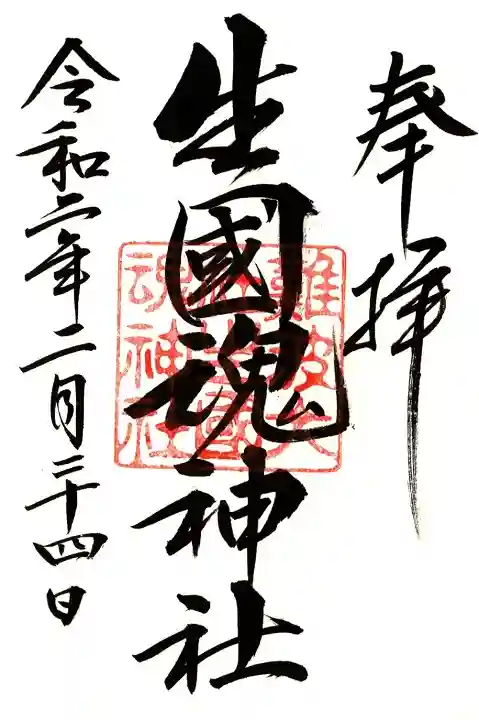 奉拝
生國魂神社
難波大
社生國
魂神社
令和二年二月二十四日